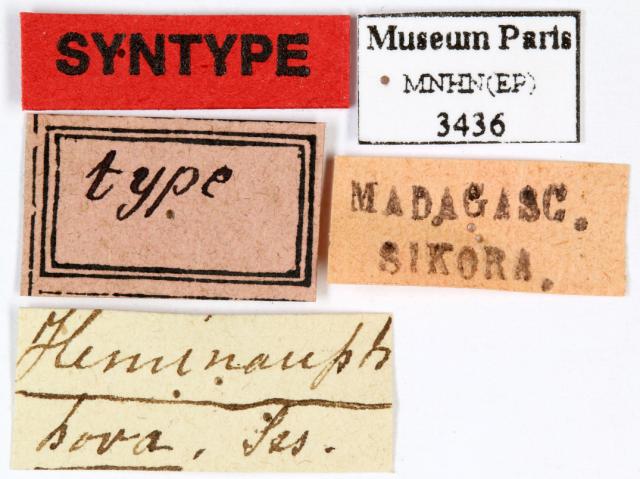 SYNTYPE
Museum Paris
MNHN(EP)
3436
type
MADAGASC.
SIKORA.
hova.